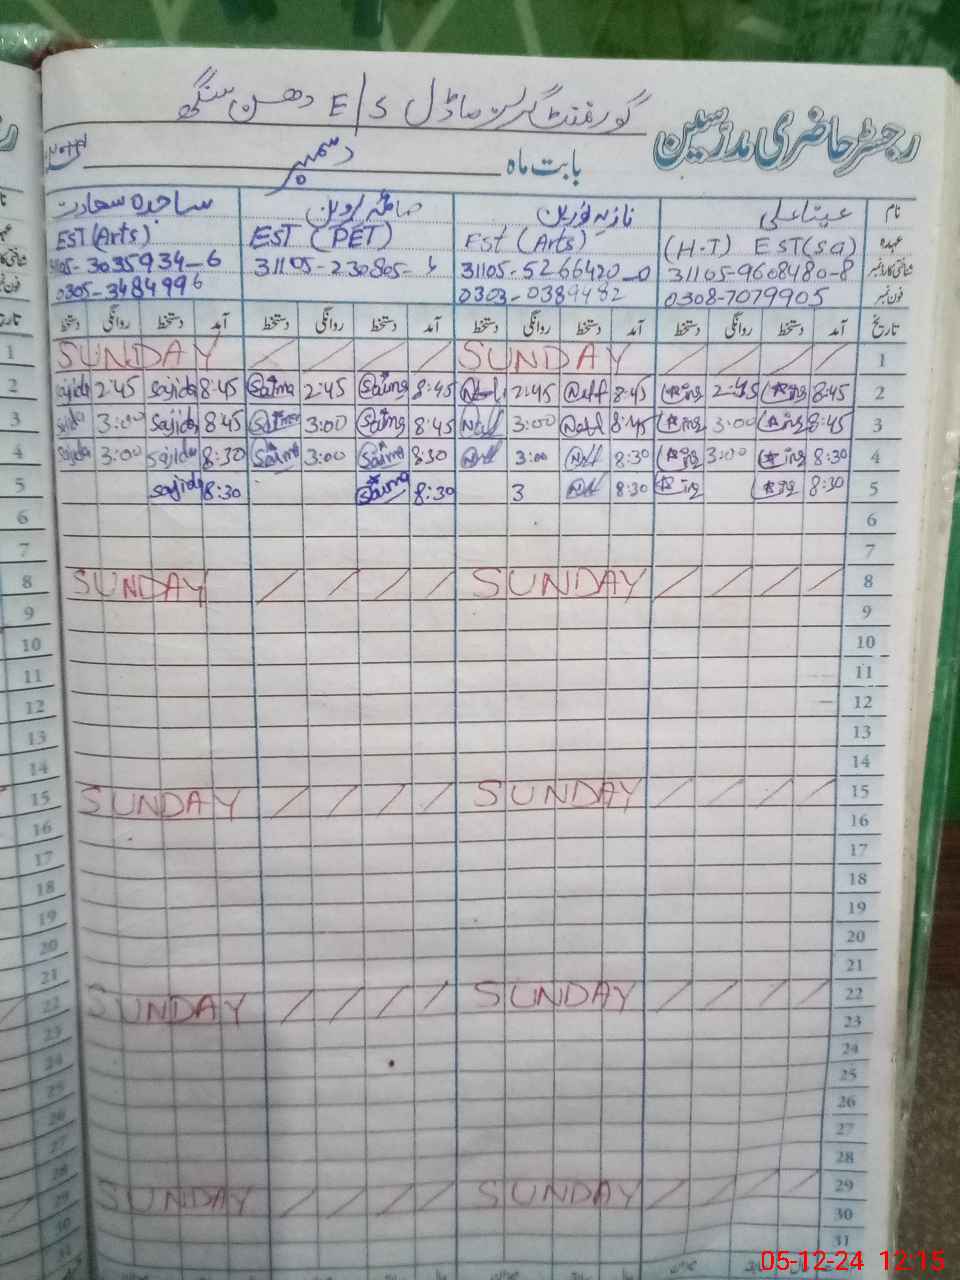 رجسٹر حاضری مدرسین گورنمنٹ گرلز ماڈل E/S دھسن سنگھ
بابت ماہ دسمبر
نام نازیہ نورین ساجدہ سعادت
عہدہ (H.T) EST(Sa) Est (Arts) EST (PET) EST (Arts)
شناختی کارڈ نمبر 31105-9608480-8 31105-5266420-0 31105-230805- 31105-3035934-6
فون نمبر 0308-7079905 0303-0389482 0305-3484996
تاریخ آمد دستخط روانگی دستخط آمد دستخط روانگی دستخط آمد دستخط روانگی دستخط آمد دستخط روانگی دستخط
1 SUNDAY SUNDAY
2 8:45 2:45 8:45 2:45 8:45 Saima 2:45 Saima 8:45 Sajida 2:45 Sajida
3 8:45 3:00 8:45 3:00 8:45 Saima 3:00 Saima 8:45 Sajida 3:00
4 8:30 3:00 8:30 3:00 8:30 Saima 3:00 Saima 8:30 Sajida 3:00 Sajida
5 8:30 8:30 3 8:30 Saima 8:30 Sajida
6
7
8 SUNDAY SUNDAY
9
10
11
12
13
14
15 SUNDAY SUNDAY
16
17
18
19
20
21
22 SUNDAY SUNDAY
23
24
25
26
27
28
29 SUNDAY SUNDAY
30
31
05-12-24 12:15